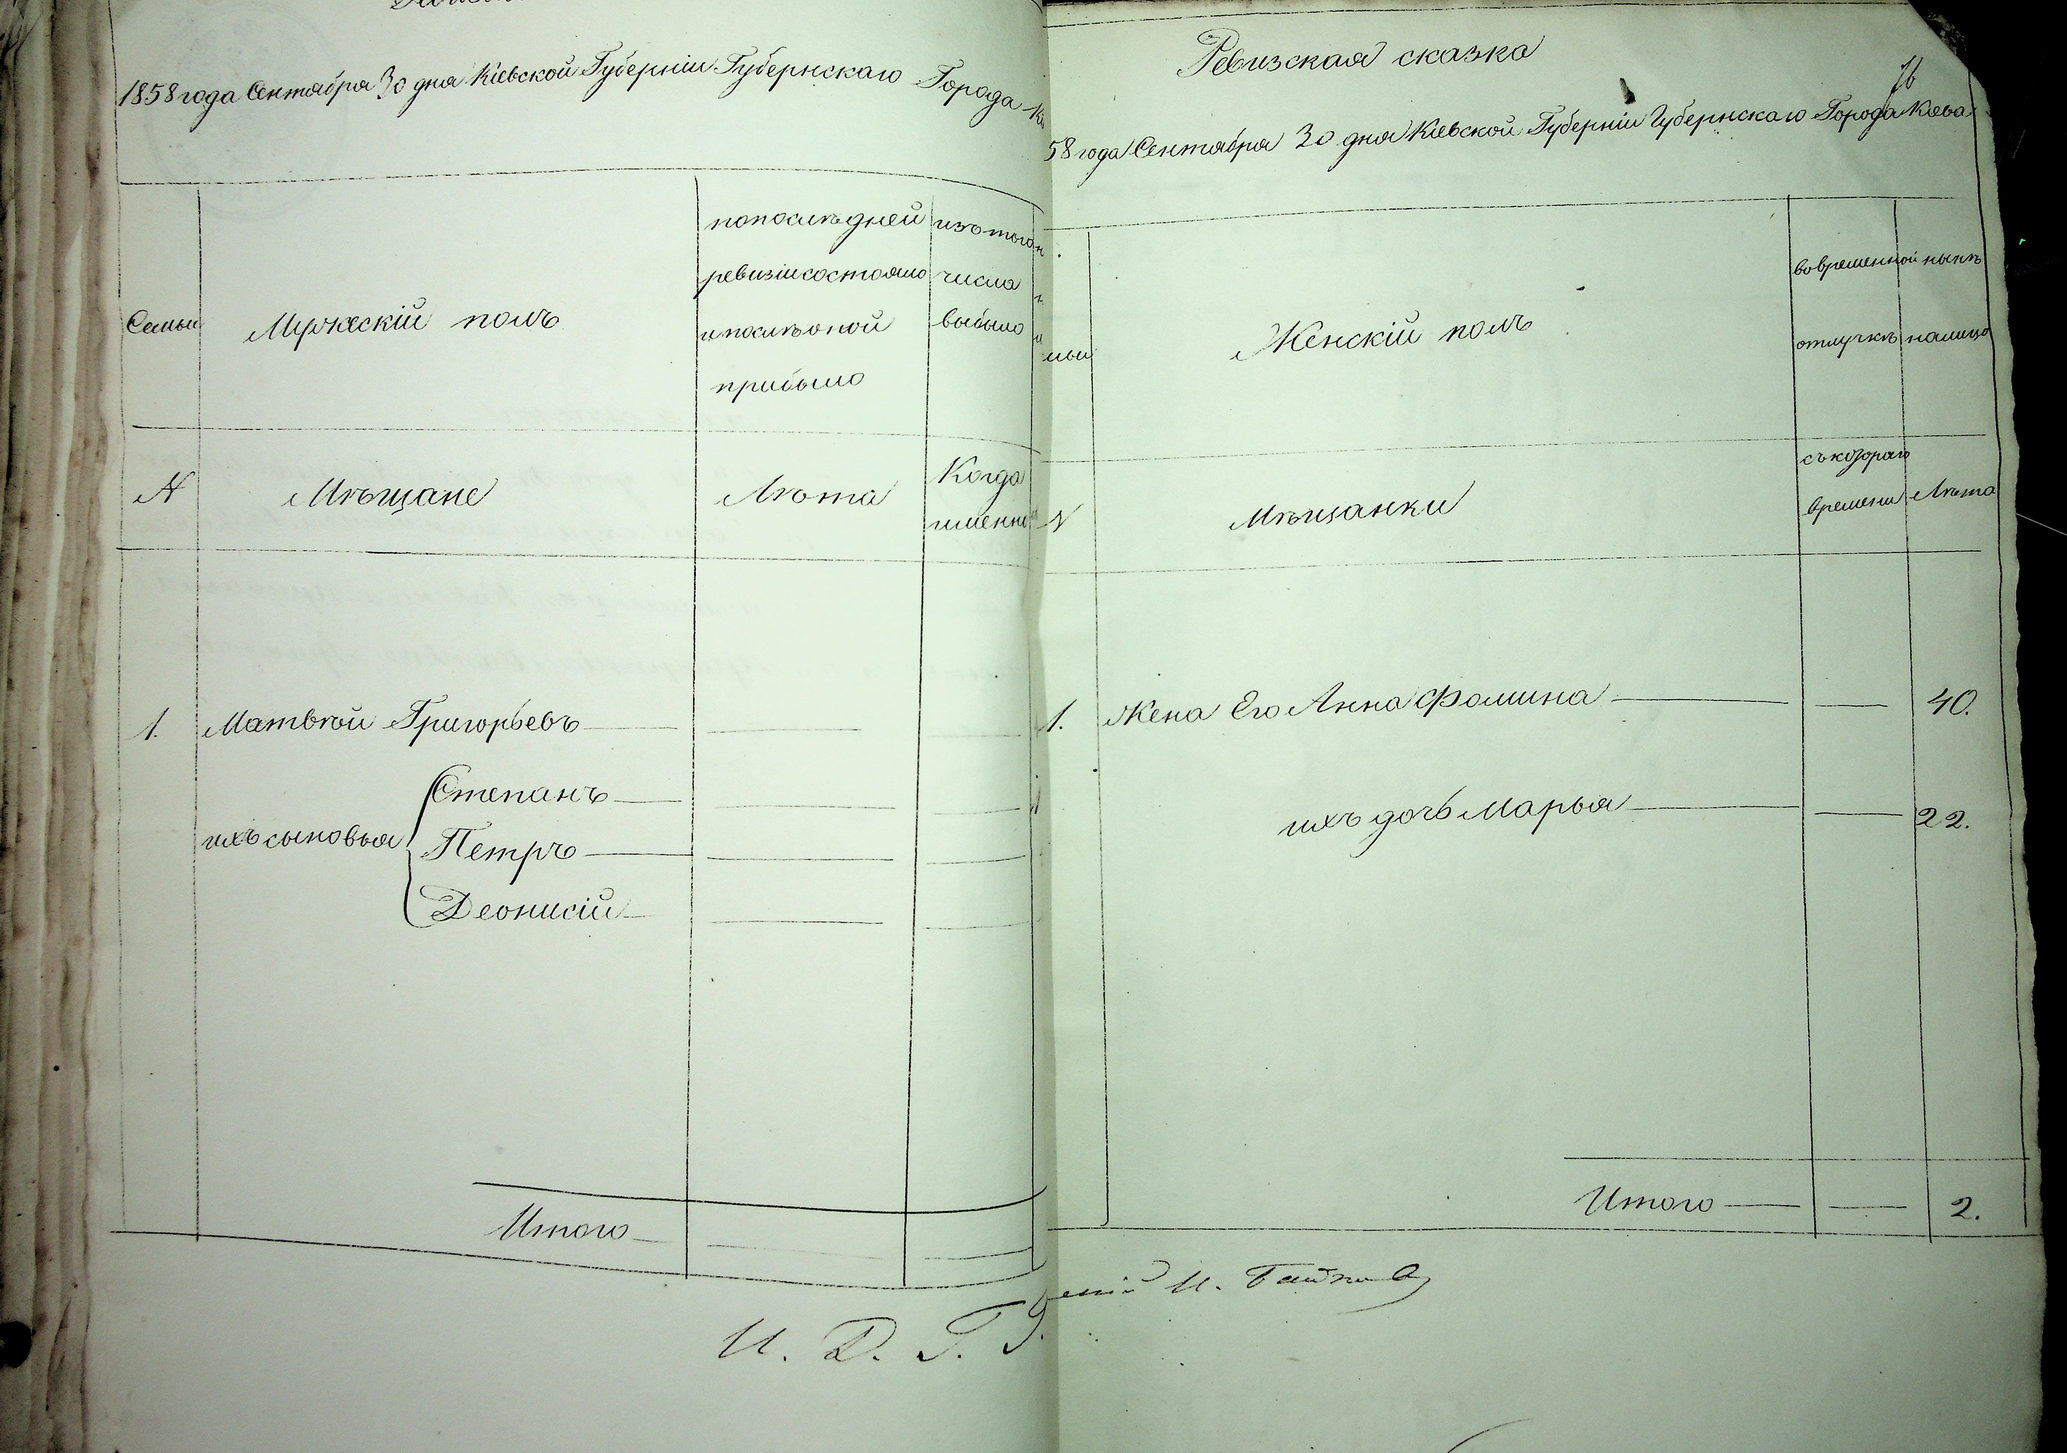 1858 года Сентября 30 дня Кіевской Губерніи Губернскаго Города
Семьи
Мужескій полъ
попослѣдней
ревизіи состояло
и послѣ оной
прибыло
изъ того
числа
выбыло
N
Мѣщане
Лѣта
Когда
именно
1. Матвѣй Григорьевъ
ихъ сыновья
Степанъ
Петръ
Деонисій
Итого
И. Д. Г.
Ревизская сказка
76
58 года Сентября 30 дня Кіевской Губерніи Губернскаго Города Кіева
мьи
Женскій полъ
во временной
отлучкѣ
нынѣ
налицо
N
Мѣщанки
съ котораго
времени
Лѣта
1. Жена Его Анна Фомина 40.
ихъ дочь Марья 22.
Итого 2.